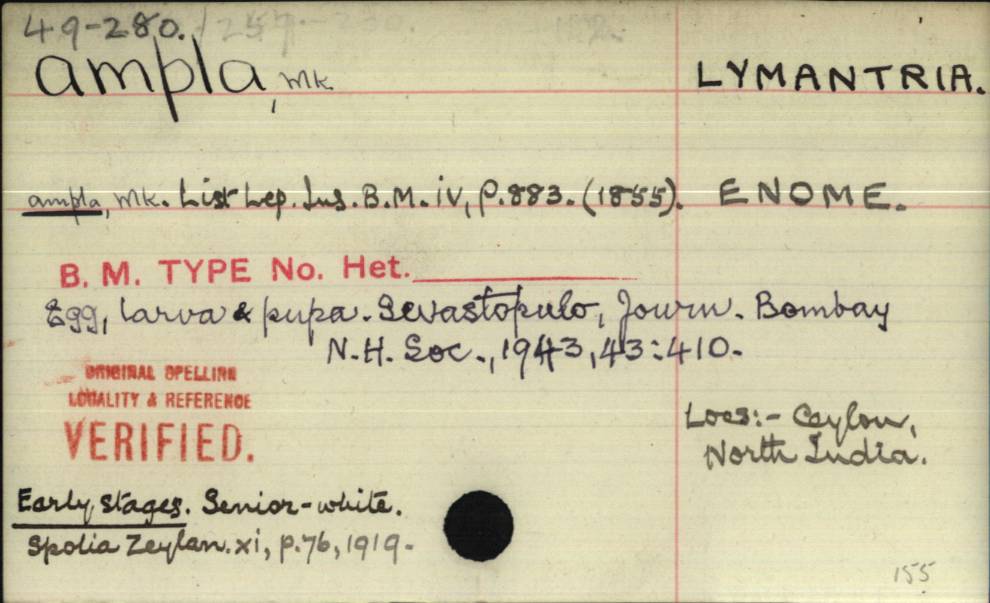 49-280.
ampla, Wlk. LYMANTRIA.
ampla, Wlk. List Lep. Ins. B.M. iv, p.883. (1855). ENOME.
B. M. TYPE No. Het.
Egg, larva & pupa. Sevastopulo, Journ. Bombay
N.H. Soc., 1943, 43:410.
ORIGINAL SPELLING
LOCALITY & REFERENCE
VERIFIED.
Locs:- Ceylon,
North India.
Early stages. Senior-white.
Spolia Zeylan. xi, p.76, 1919.
155